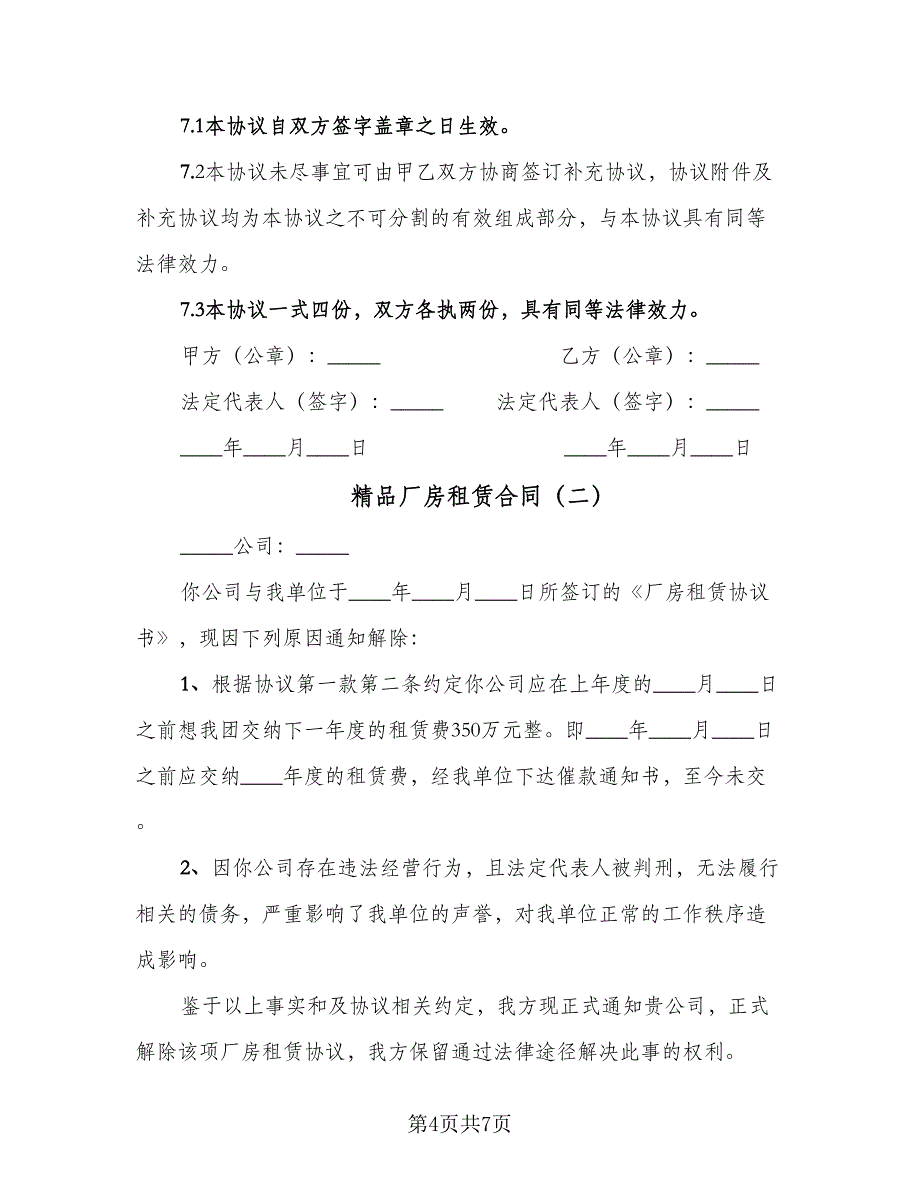 7.1本协议自双方签字盖章之日生效。
7.2本协议未尽事宜可由甲乙双方协商签订补充协议，协议附件及
补充协议均为本协议之不可分割的有效组成部分，与本协议具有同等
法律效力。
7.3本协议一式四份，双方各执两份，具有同等法律效力。
甲方（公章）：_____ 乙方（公章）：_____
法定代表人（签字）：_____ 法定代表人（签字）：_____
____年____月____日 ____年____月____日
精品厂房租赁合同（二）
_____公司：_____
你公司与我单位于____年____月____日所签订的《厂房租赁协议
书》，现因下列原因通知解除：
1、根据协议第一款第二条约定你公司应在上年度的____月____日
之前想我团交纳下一年度的租赁费350万元整。即____年____月____日
之前应交纳____年度的租赁费，经我单位下达催款通知书，至今未交
。
2、因你公司存在违法经营行为，且法定代表人被判刑，无法履行
相关的债务，严重影响了我单位的声誉，对我单位正常的工作秩序造
成影响。
鉴于以上事实和及协议相关约定，我方现正式通知贵公司，正式
解除该项厂房租赁协议，我方保留通过法律途径解决此事的权利。
第4页共7页